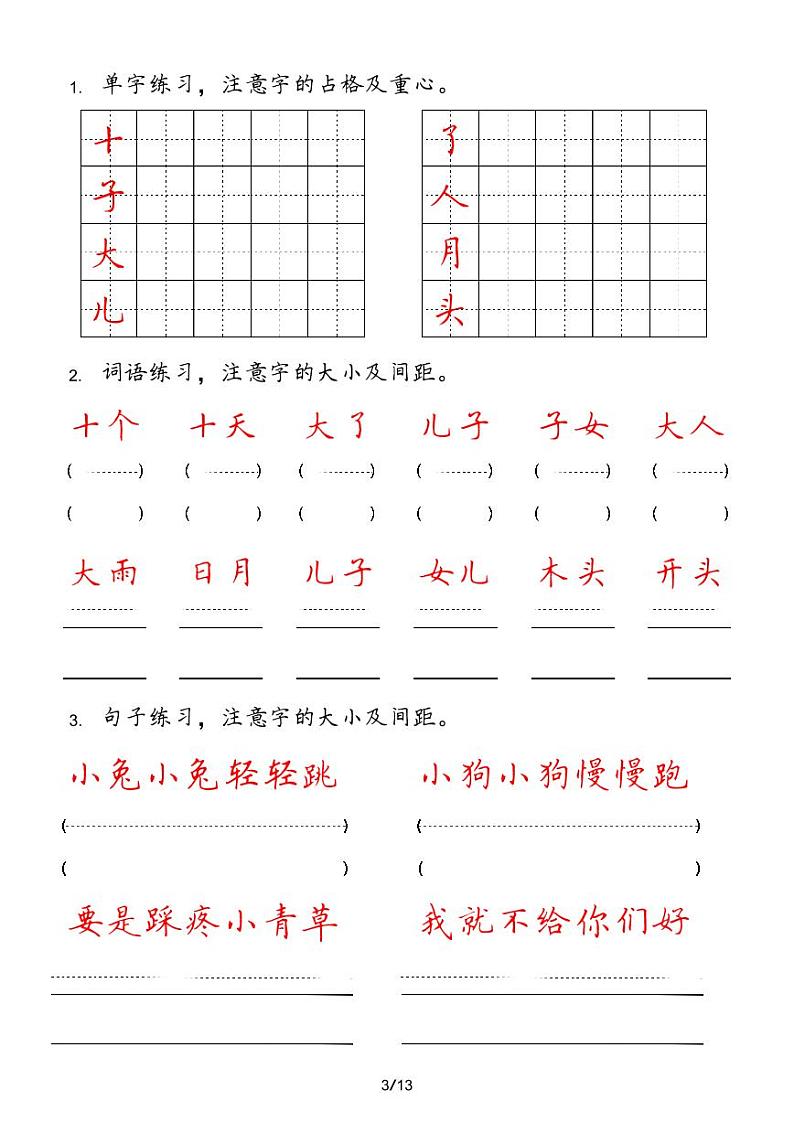 1. 单字练习，注意字的占格及重心。
十 了
子 人
大 月
儿 头
2. 词语练习，注意字的大小及间距。
十个 十天 大了 儿子 子女 大人
( ) ( ) ( ) ( ) ( ) ( )
( ) ( ) ( ) ( ) ( ) ( )
大雨 日月 儿子 女儿 木头 开头
3. 句子练习，注意字的大小及间距。
小兔小兔轻轻跳 小狗小狗慢慢跑
( ) ( )
( ) ( )
要是踩疼小青草 我就不给你们好
3/13